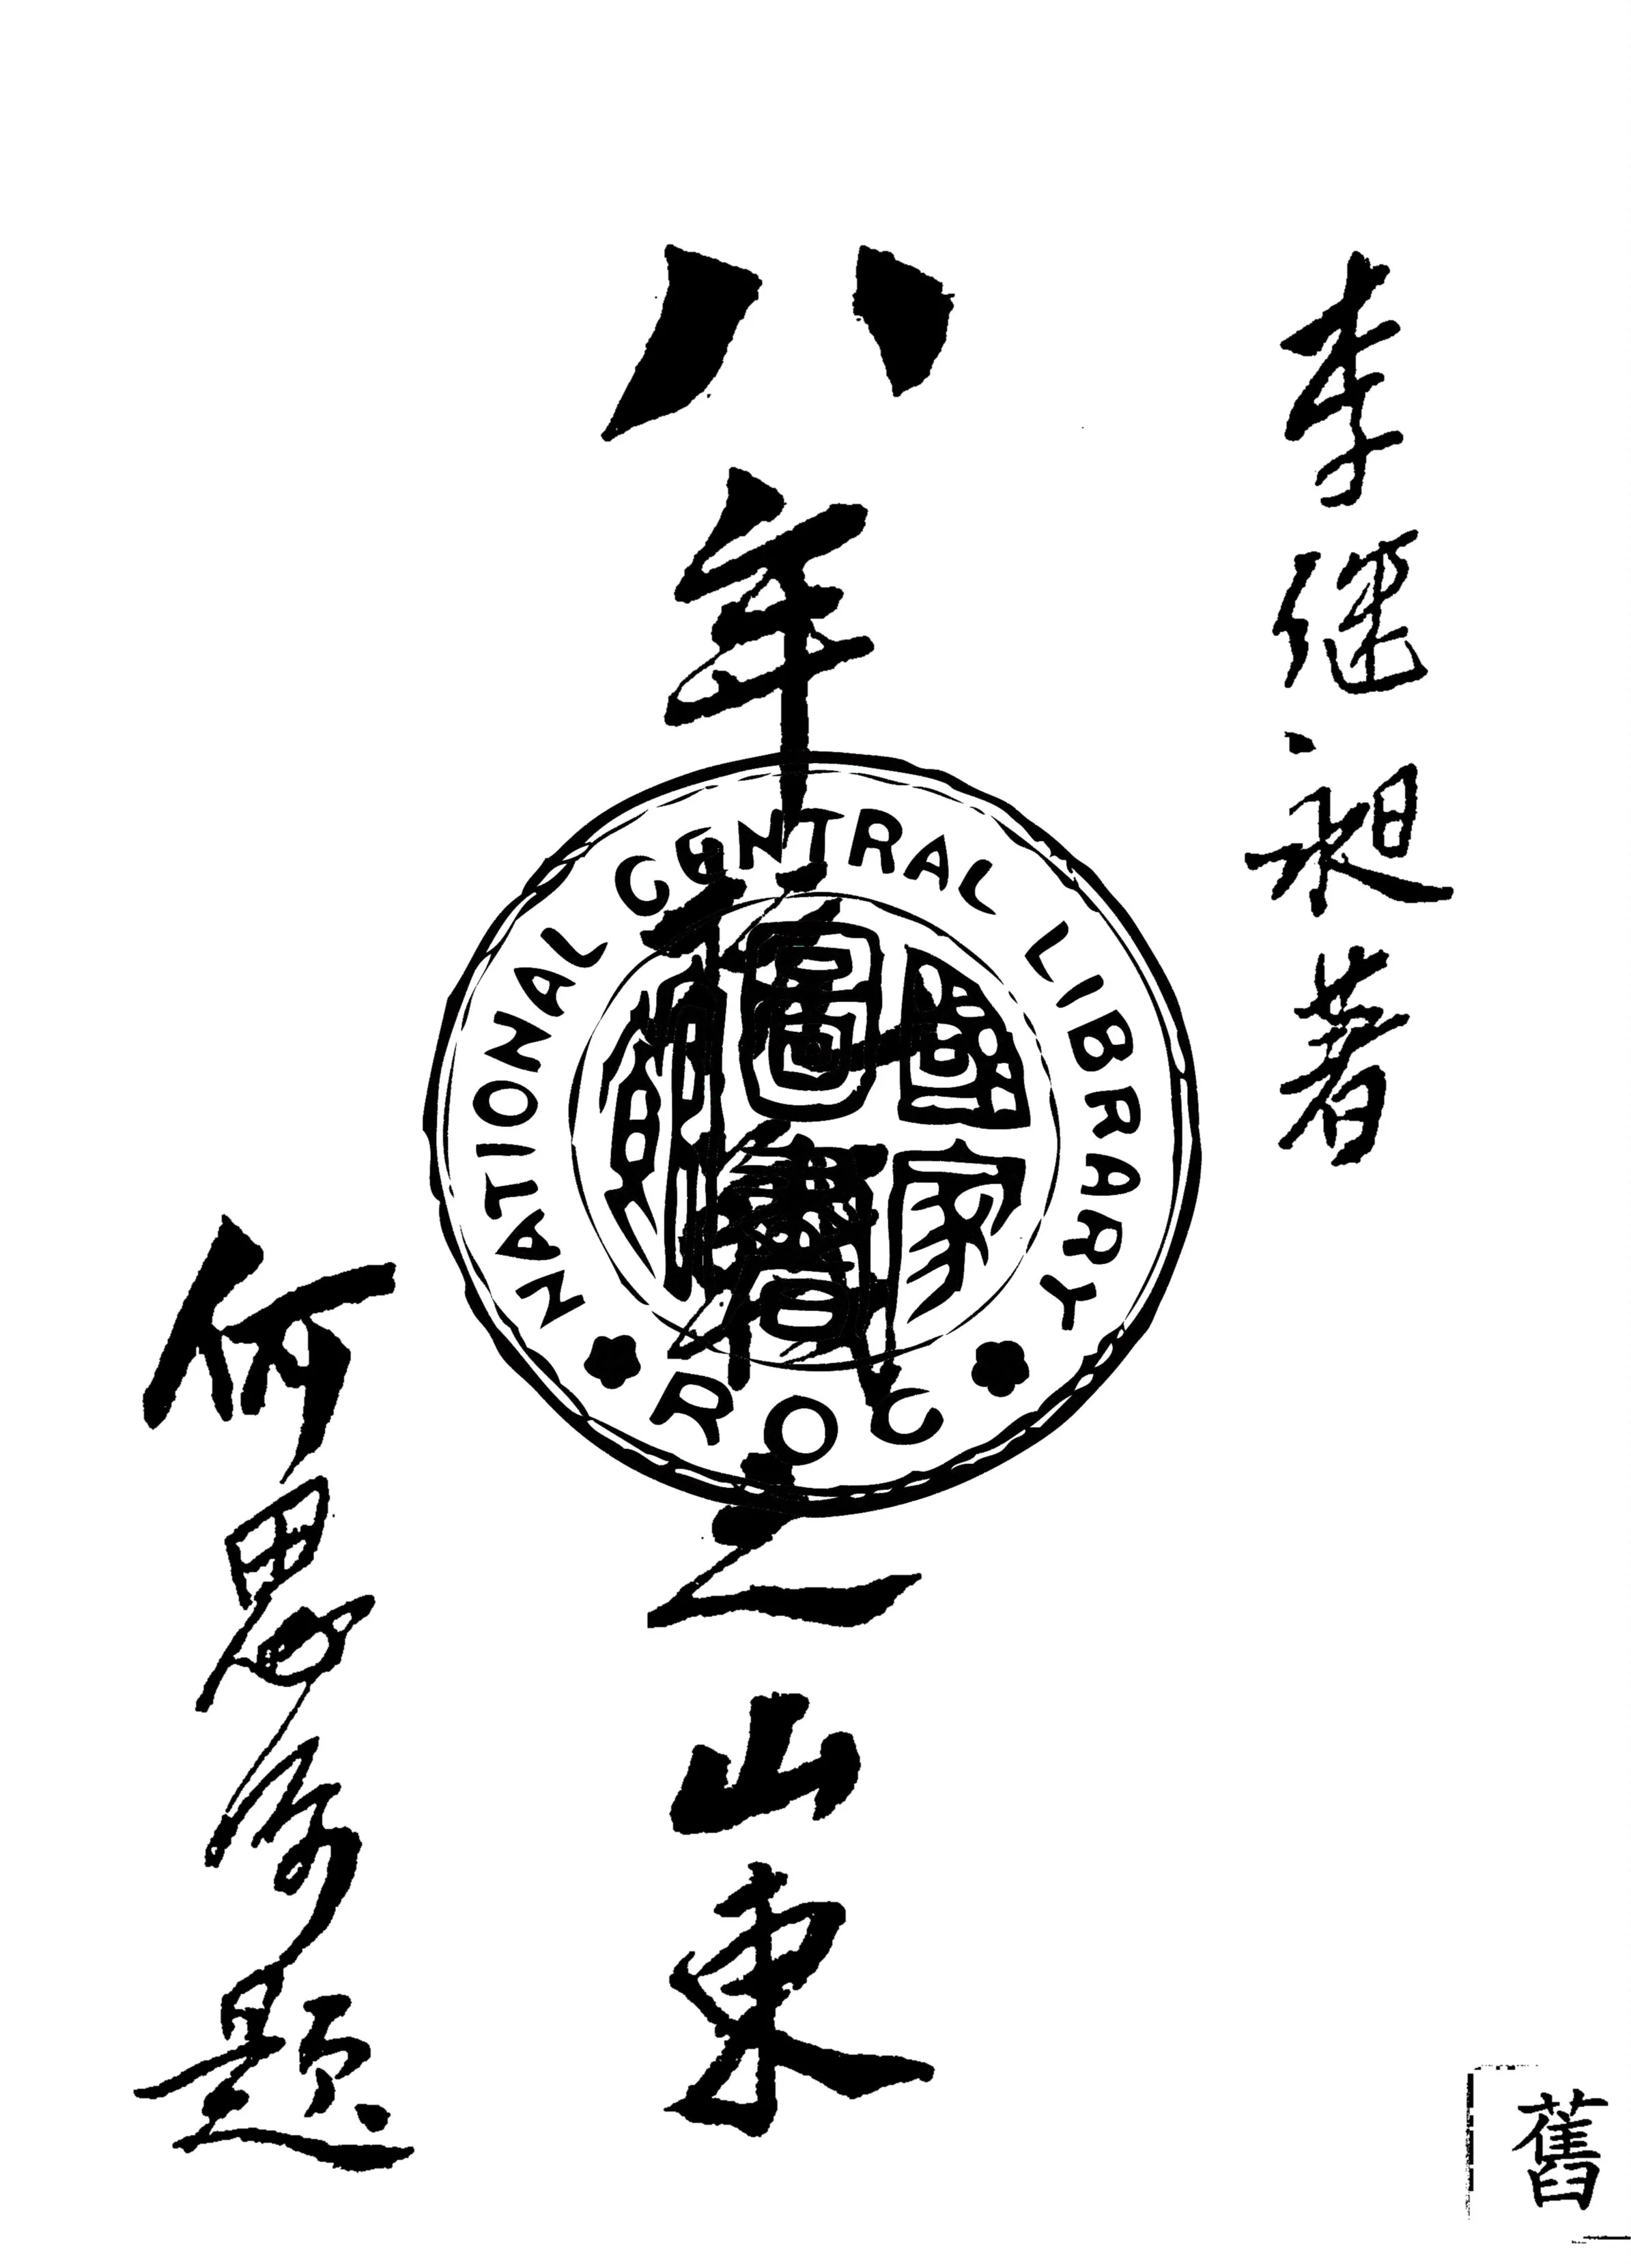 李昶著
八年抗戰之山東
何思源題
NATIONAL CENTRAL LIBRARY
R O C
國家圖書館
舊